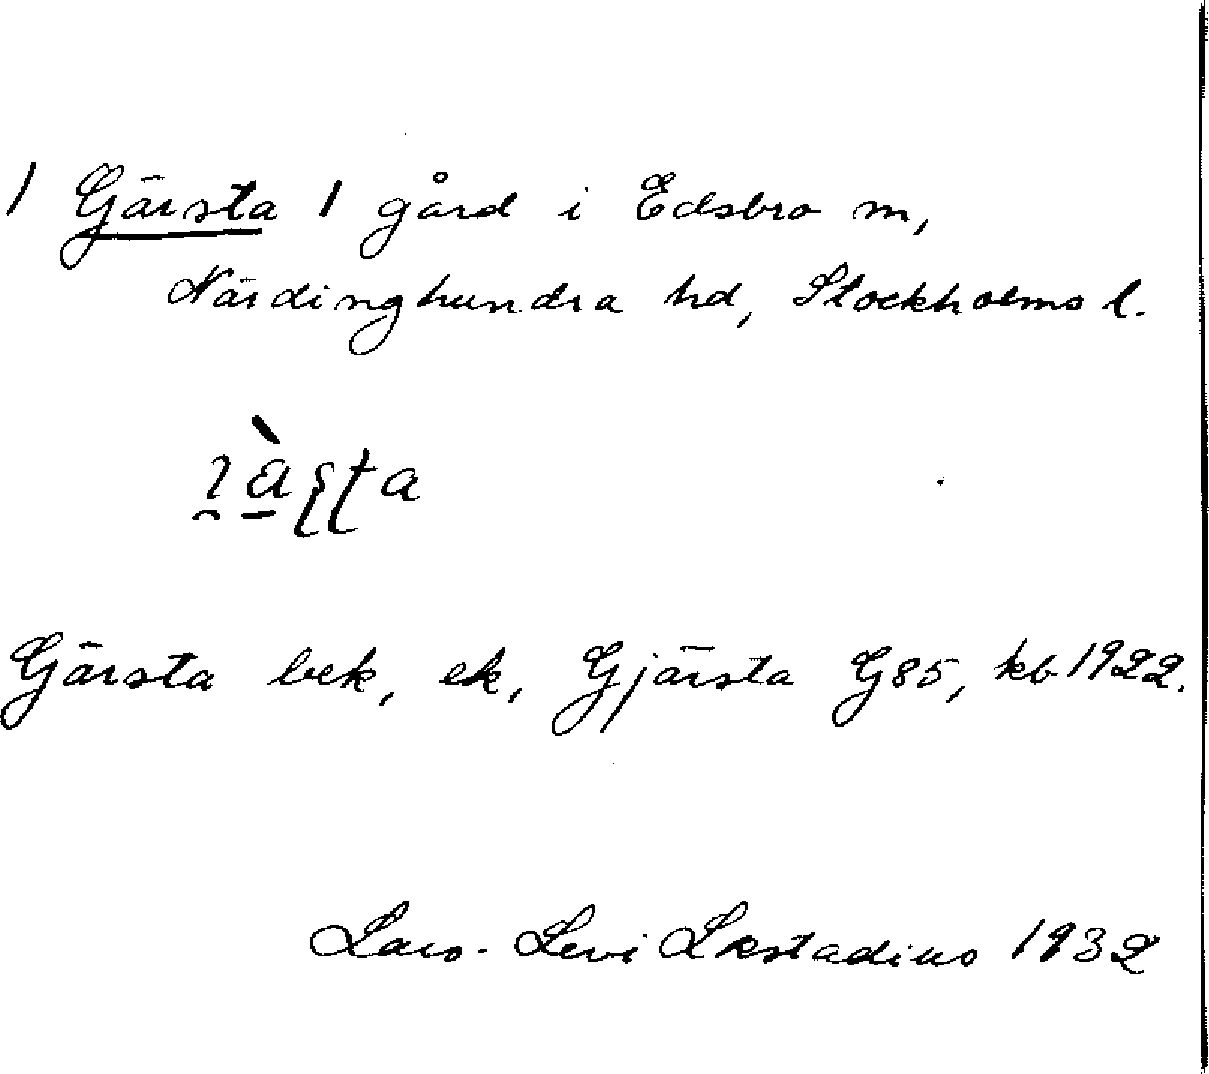 / Gärsta 1 gård i Edsbro sn,
Närdinghundra hd, Stockholms l.
Gärsta bek, ek, Gjärsta G85, kb 1922.
Lars-Levi Læstadius 1932